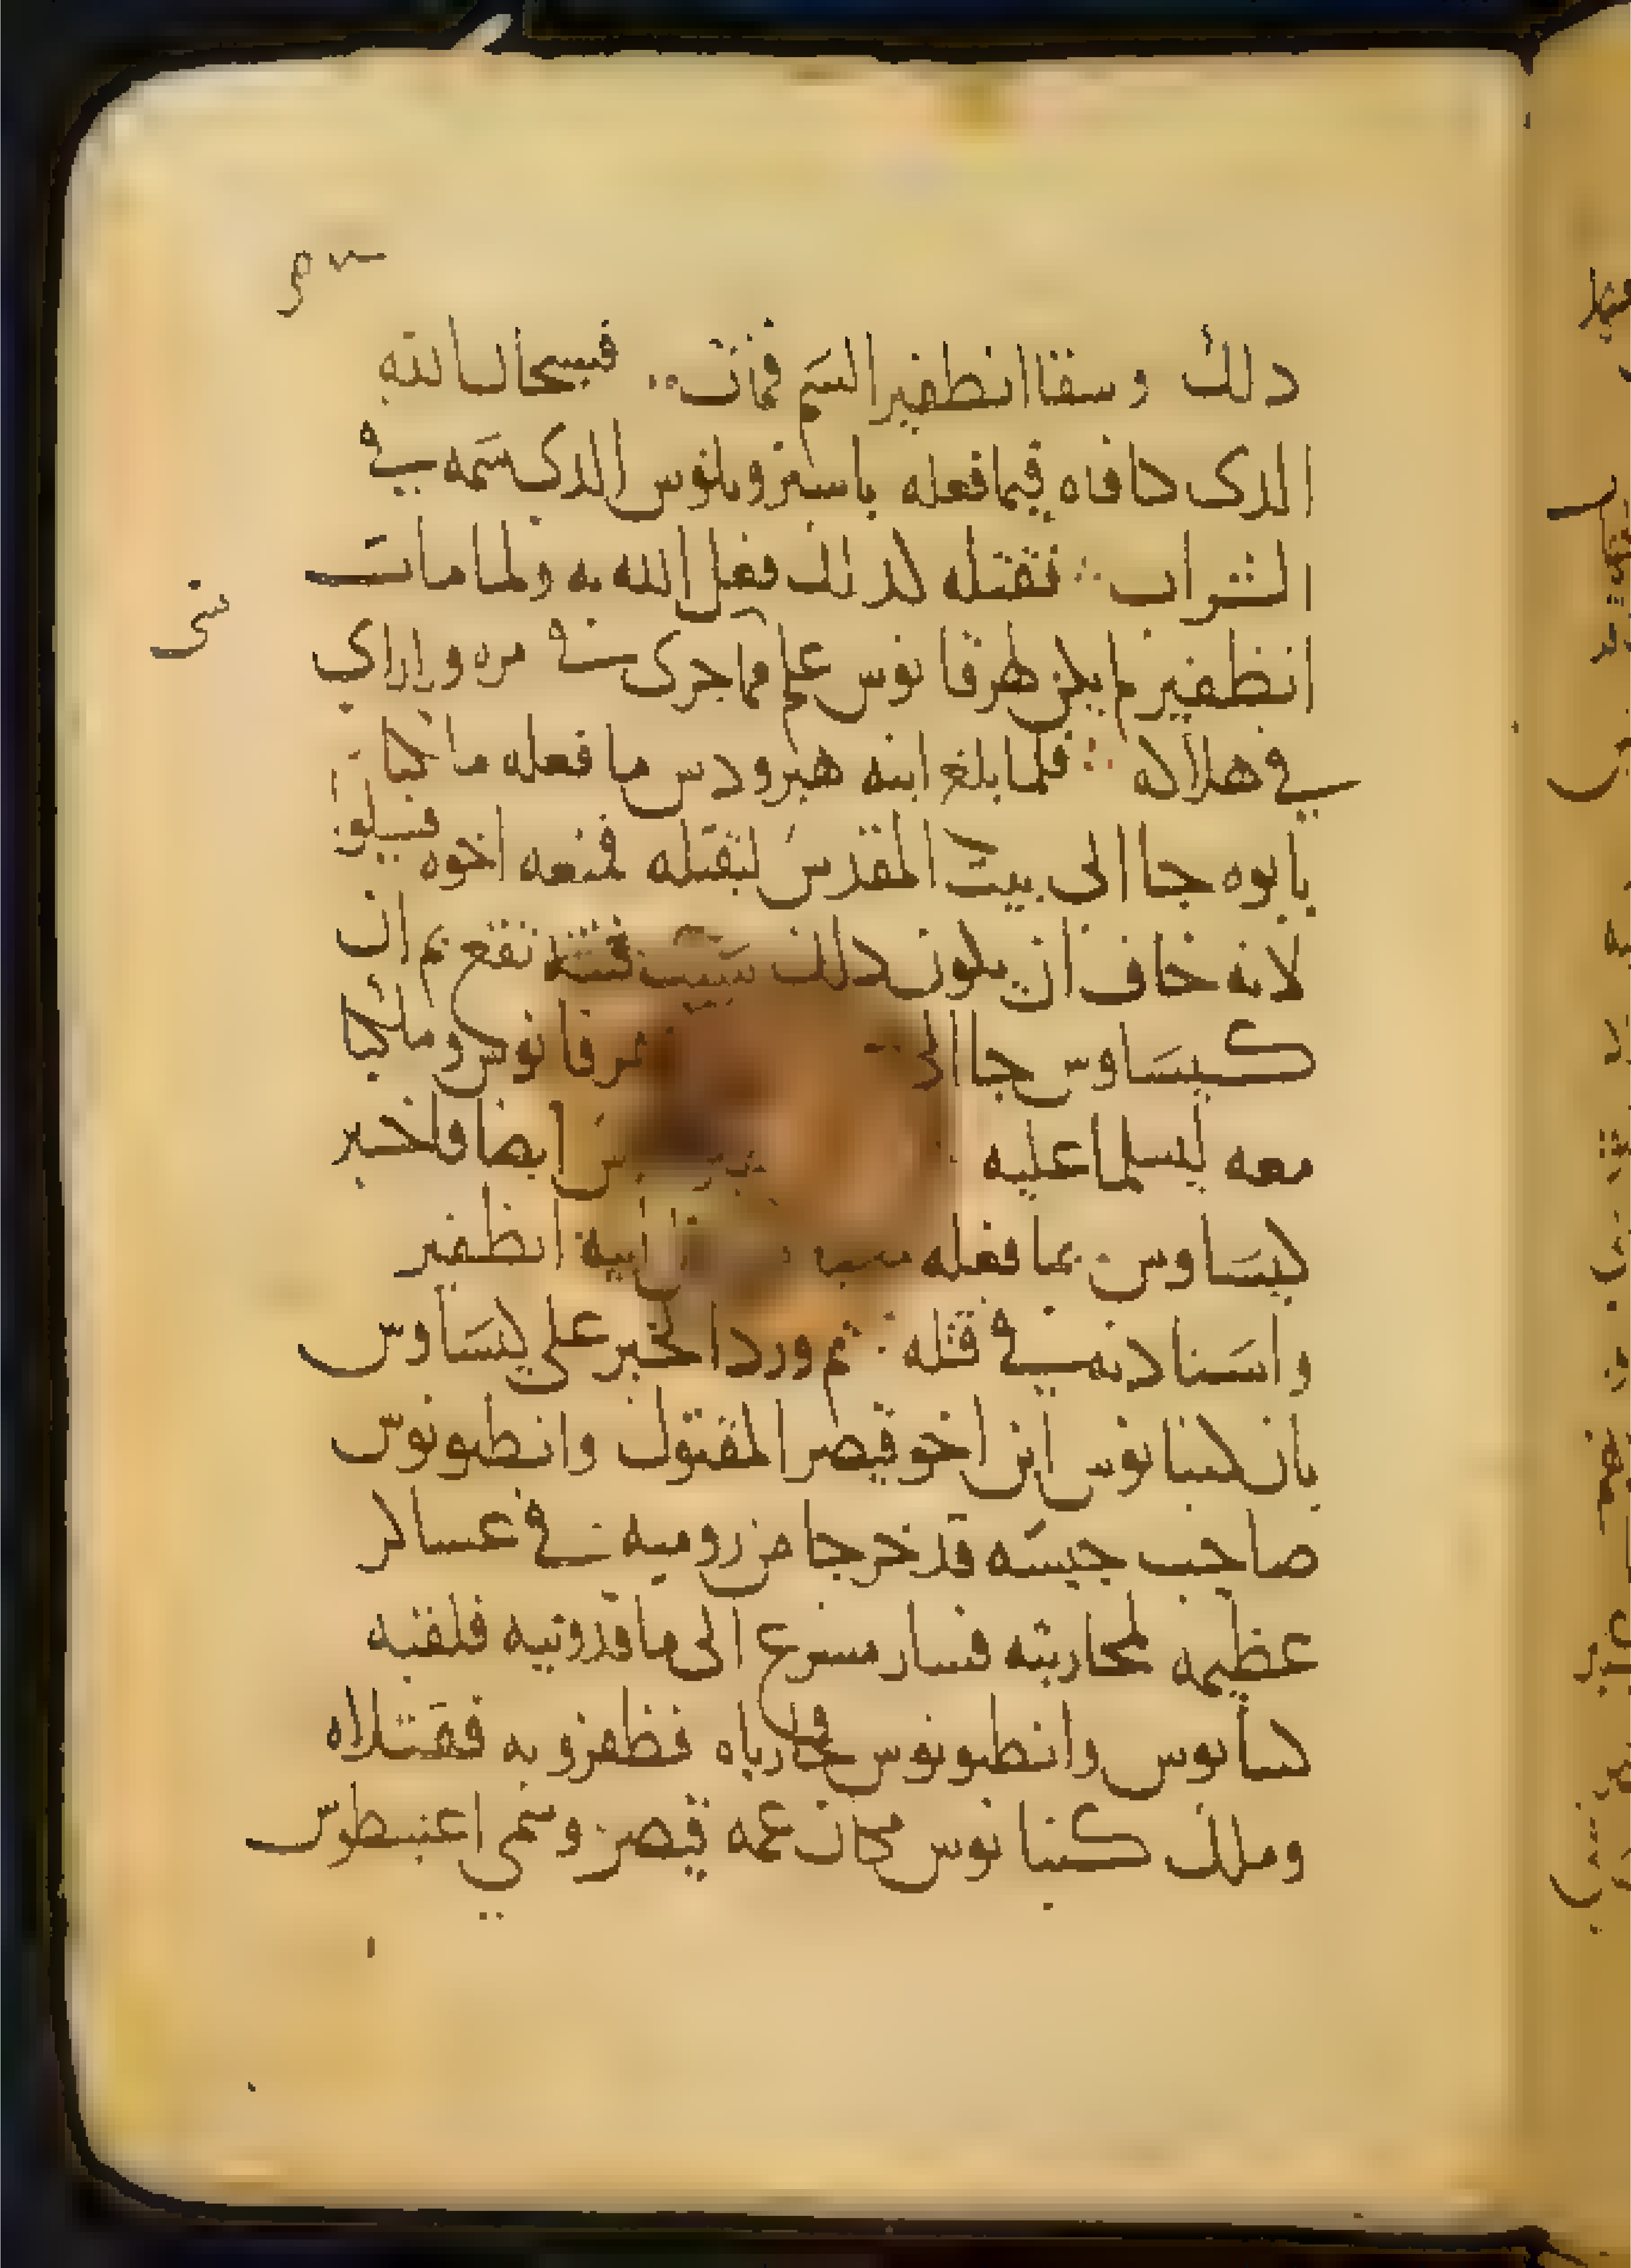 دلك وسقا انظفير السم فمات فسبحان الله
الدى كافاه فيما فعله باسترو بلوس الدى سمه في
الشراب فقتله كدلك فعل الله به ولما مات
انظفير لم يكن لهرقانوس علم مما جرى في مره وا راي
في هلاكه فلما بلغ ابنه هيرودس ما فعله ملكيا
بابوه جا الى بيت المقدس ليقتله فمنعه اخوه فسيلو
لانه خاف ان يكون دلك سبب فتنه تقع ثم ان
كيساوس جا الى هرقانوس وملكيا
معه ليسلما عليه ايضا فاخبر
كيساوس بما فعله ابيه انظفير
واستادنه في قتله ثم ورد الخبر على كيساوس
بان كتبانوس ابن اخو قيصر المقتول وانطونيوس
صاحب جيشه قد خرجا من روميه في عساكر
عظيمه لمحاربته فسار مسرع الى ماقدونيه فلقيه
كتبانوس وانطونيوس فحارباه فظفرو به فقتلاه
وملك كتبانوس مكان عمه قيصر وسمي اغبسطوس